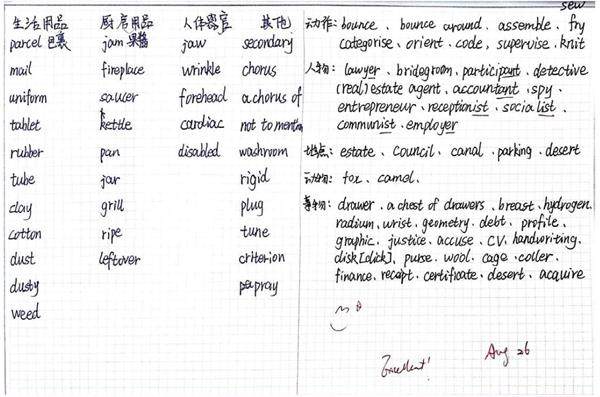 生活用品 厨房用品 人体器官 其他
parcel 包裹 jam 果酱 jaw secondary
mail fireplace wrinkle chorus
uniform saucer forehead a chorus of
tablet kettle cardiac not to mention
rubber pan disabled washroom
tube jar rigid
clay grill plug
cotton ripe tune
dust leftover criterion
dusty
weed
sew
动作: bounce、bounce around、assemble、fry
categorise、orient、code、supervise、knit
人物: lawyer、bridegroom、participant、detective
(real) estate agent、accountant、spy、
entrepreneur、receptionist、socialist、
communist、employer
地点: estate、council、canal、parking、desert
动物: fox、camel、
事物: drawer、a chest of drawers、breast、hydrogen、
radium、wrist、geometry、debt、profile、
graphic、justice、accuse、CV、handwriting、
disk[click]、purse、wool、cage、coller、
finance、receipt、certificate、desert、acquire
Excellent!
Aug 26